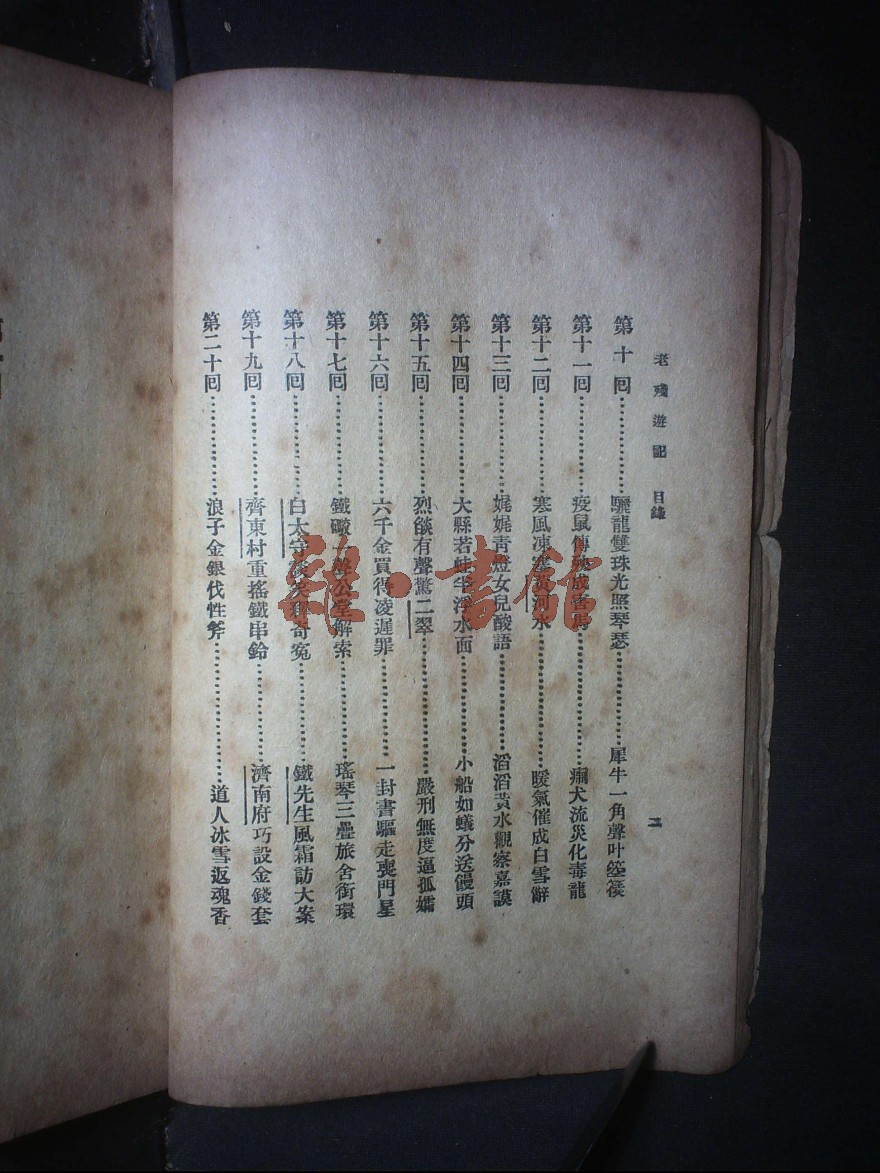 老殘遊記 目錄
二
第十回 驪龍雙珠光照琴瑟 犀牛一角聲叶箜篌
第十一回 疫鼠傳殃成害馬 瘈犬流災化毒龍
第十二回 寒風凍塞黃河水 暖氣催成白雪辭
第十三回 娓娓青燈女兒酸語 滔滔黃水觀察嘉謨
第十四回 大縣若蛙半浮水面 小船如蟻分送饅頭
第十五回 烈燄有聲驚二翠 嚴刑無度逼孤孀
第十六回 六千金買得凌遲罪 一封書驅走喪門星
第十七回 鐵礮一聲公堂解索 瑤琴三疊旅舍銜環
第十八回 白太守談笑釋奇冤 鐵先生風霜訪大案
第十九回 齊東村重搖鐵串鈴 濟南府巧設金錢套
第二十回 浪子金銀伐性斧 道人冰雪返魂香
書館